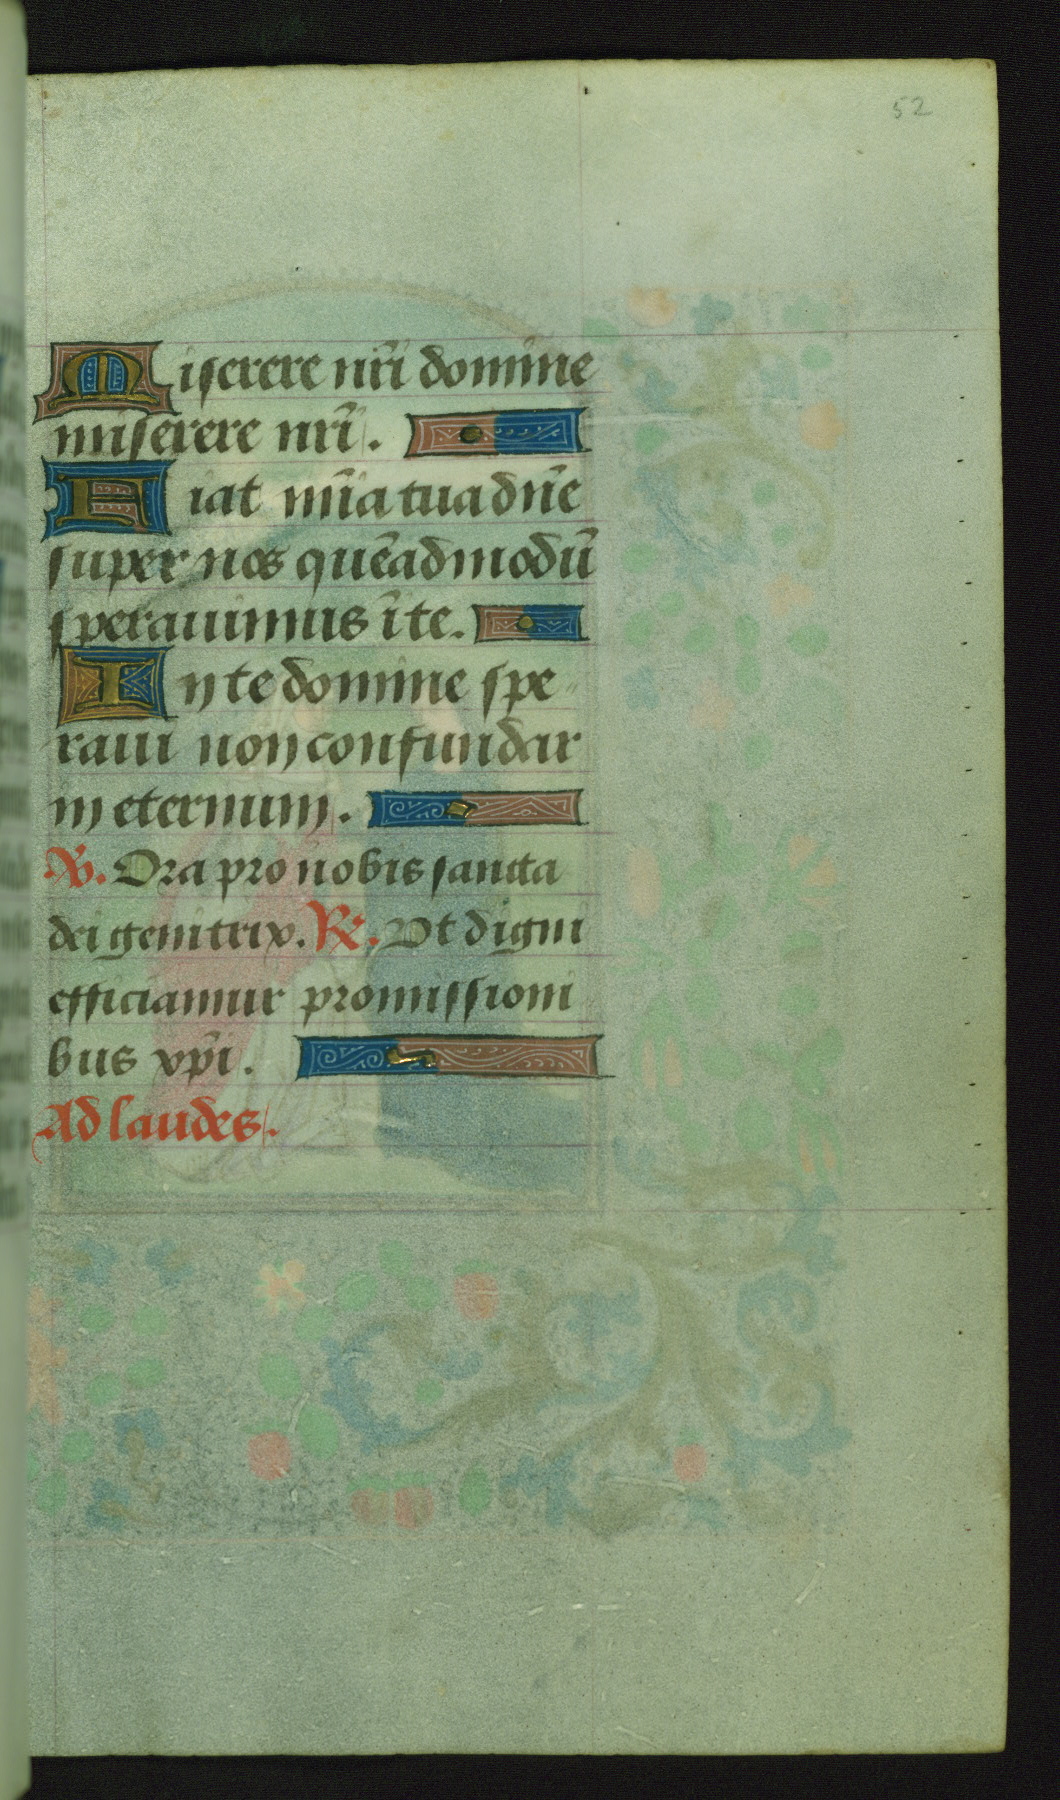 52
Miserere nr̄i domine
miserere nr̄i.
Fiat mīa tua dn̄e
super nos quēadmodū
sperauimus īte.
In te domine spe
raui non confundar
in eternum.
℣. Ora pro nobis sancta
dei genitrix. ℟. Vt digni
efficiamur promissioni
bus xp̄i.
Ad laudes.